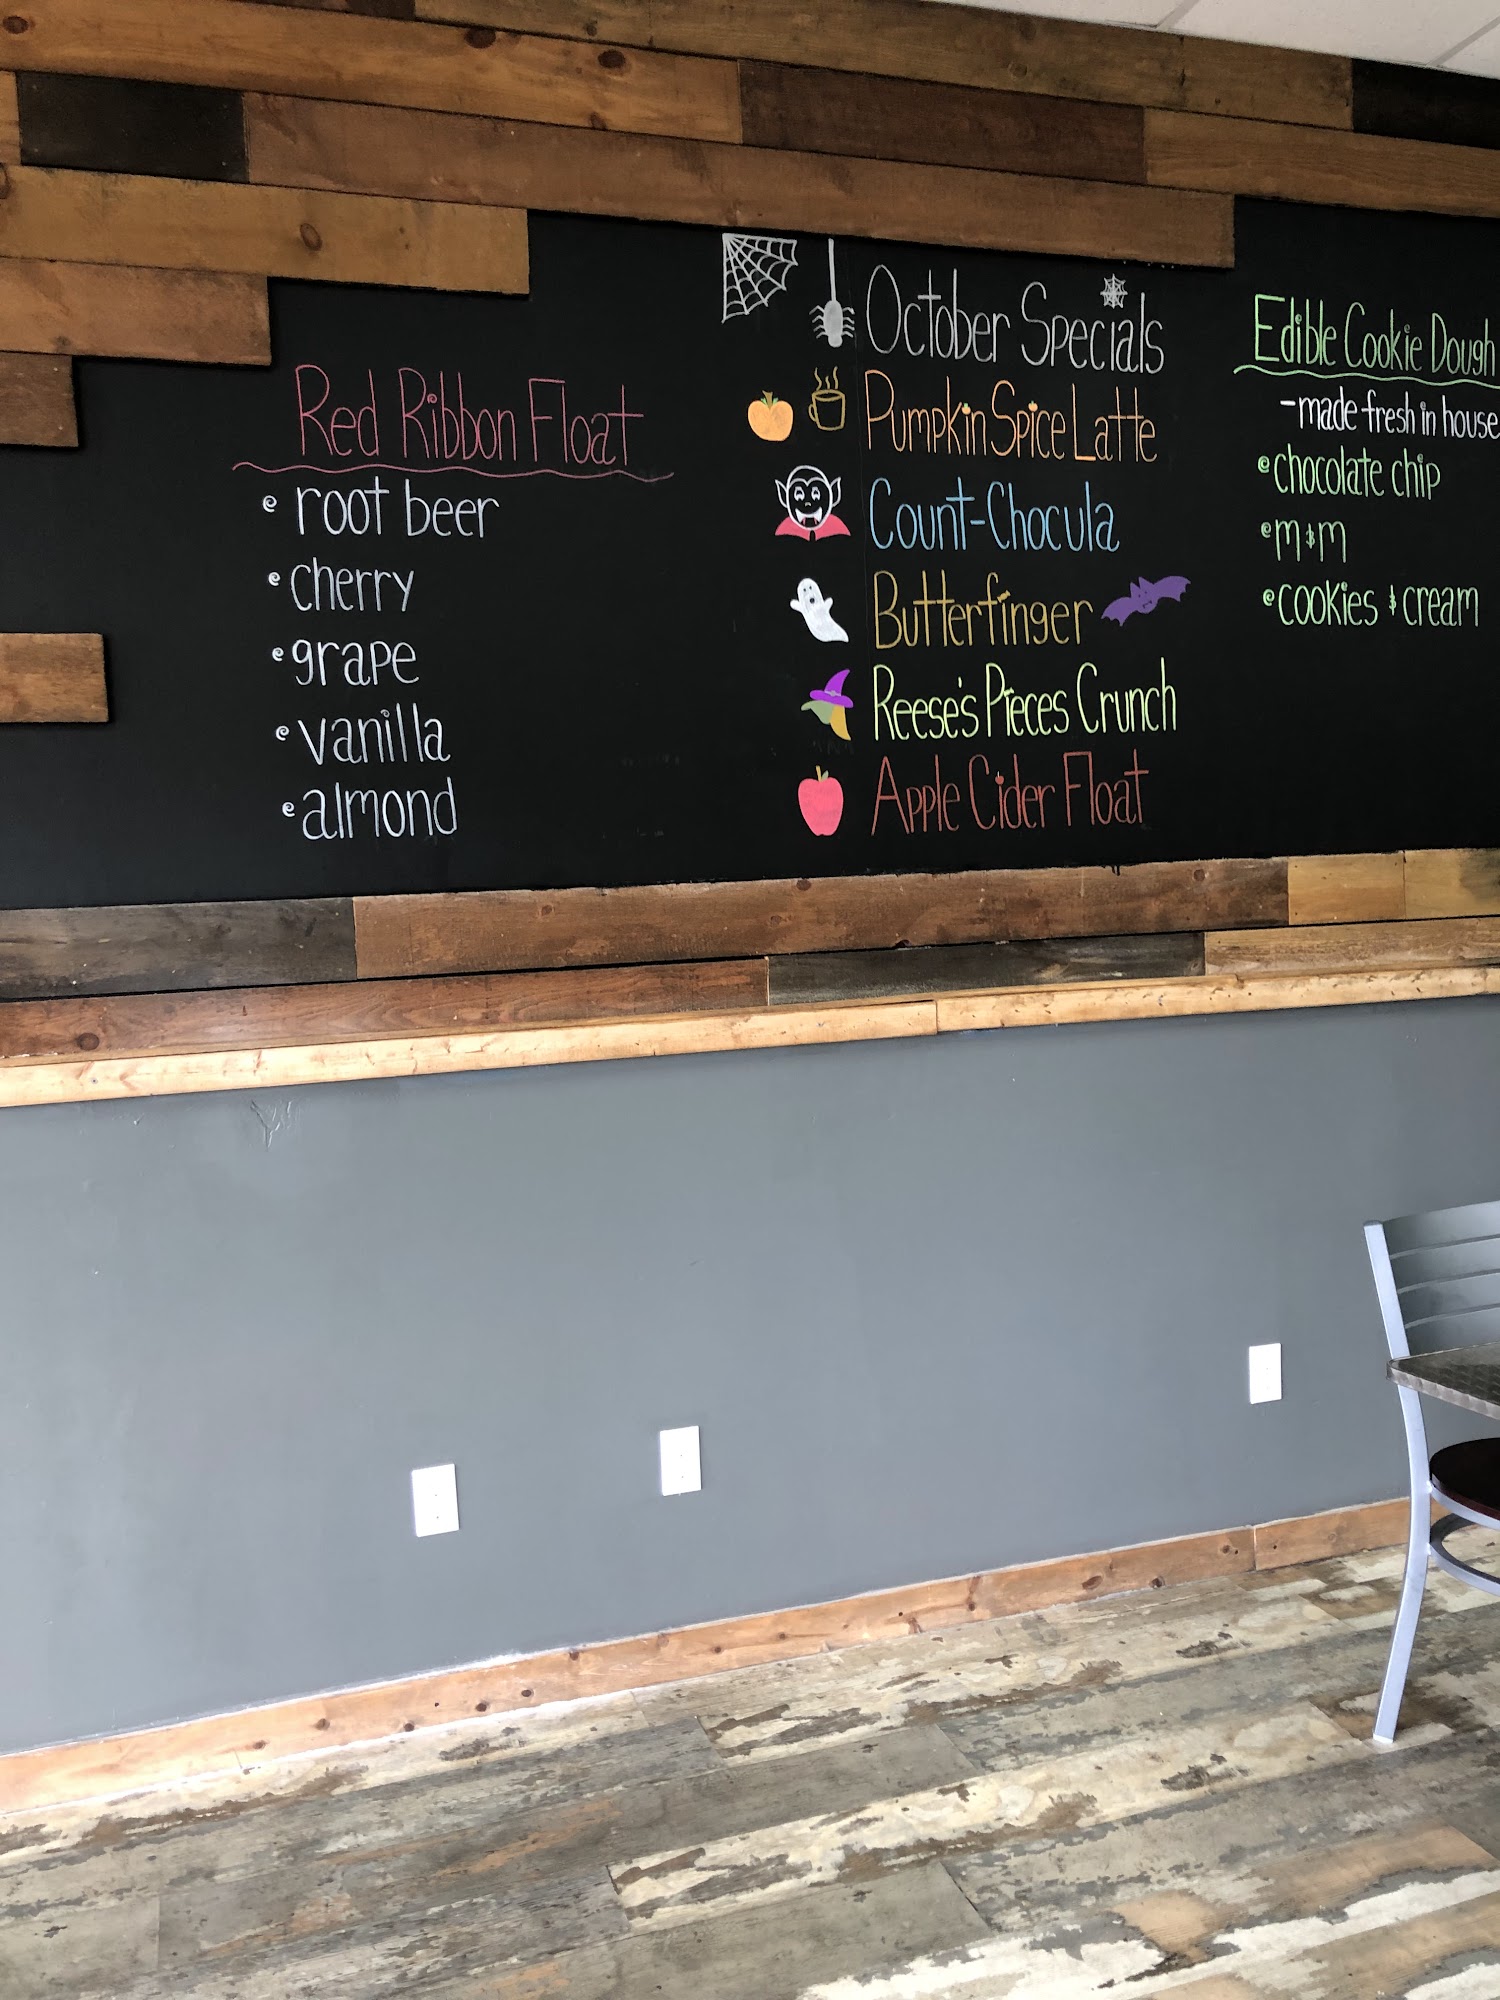 Red Ribbon Float
root beer
cherry
grape
vanilla
almond
October Specials
Pumpkin Spice Latte
Count-Chocula
Butterfinger
Reese's Pieces Crunch
Apple Cider Float
Edible Cookie Dough
-made fresh in house
chocolate chip
m&m
cookies & cream